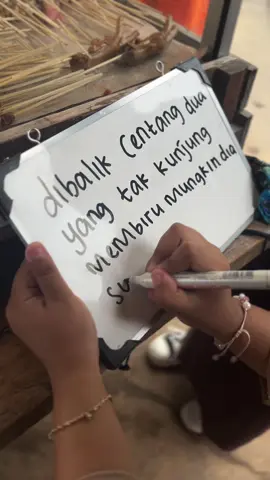 dibalik Centang dua
yang tak kunjung
membiru mungkin dia
su